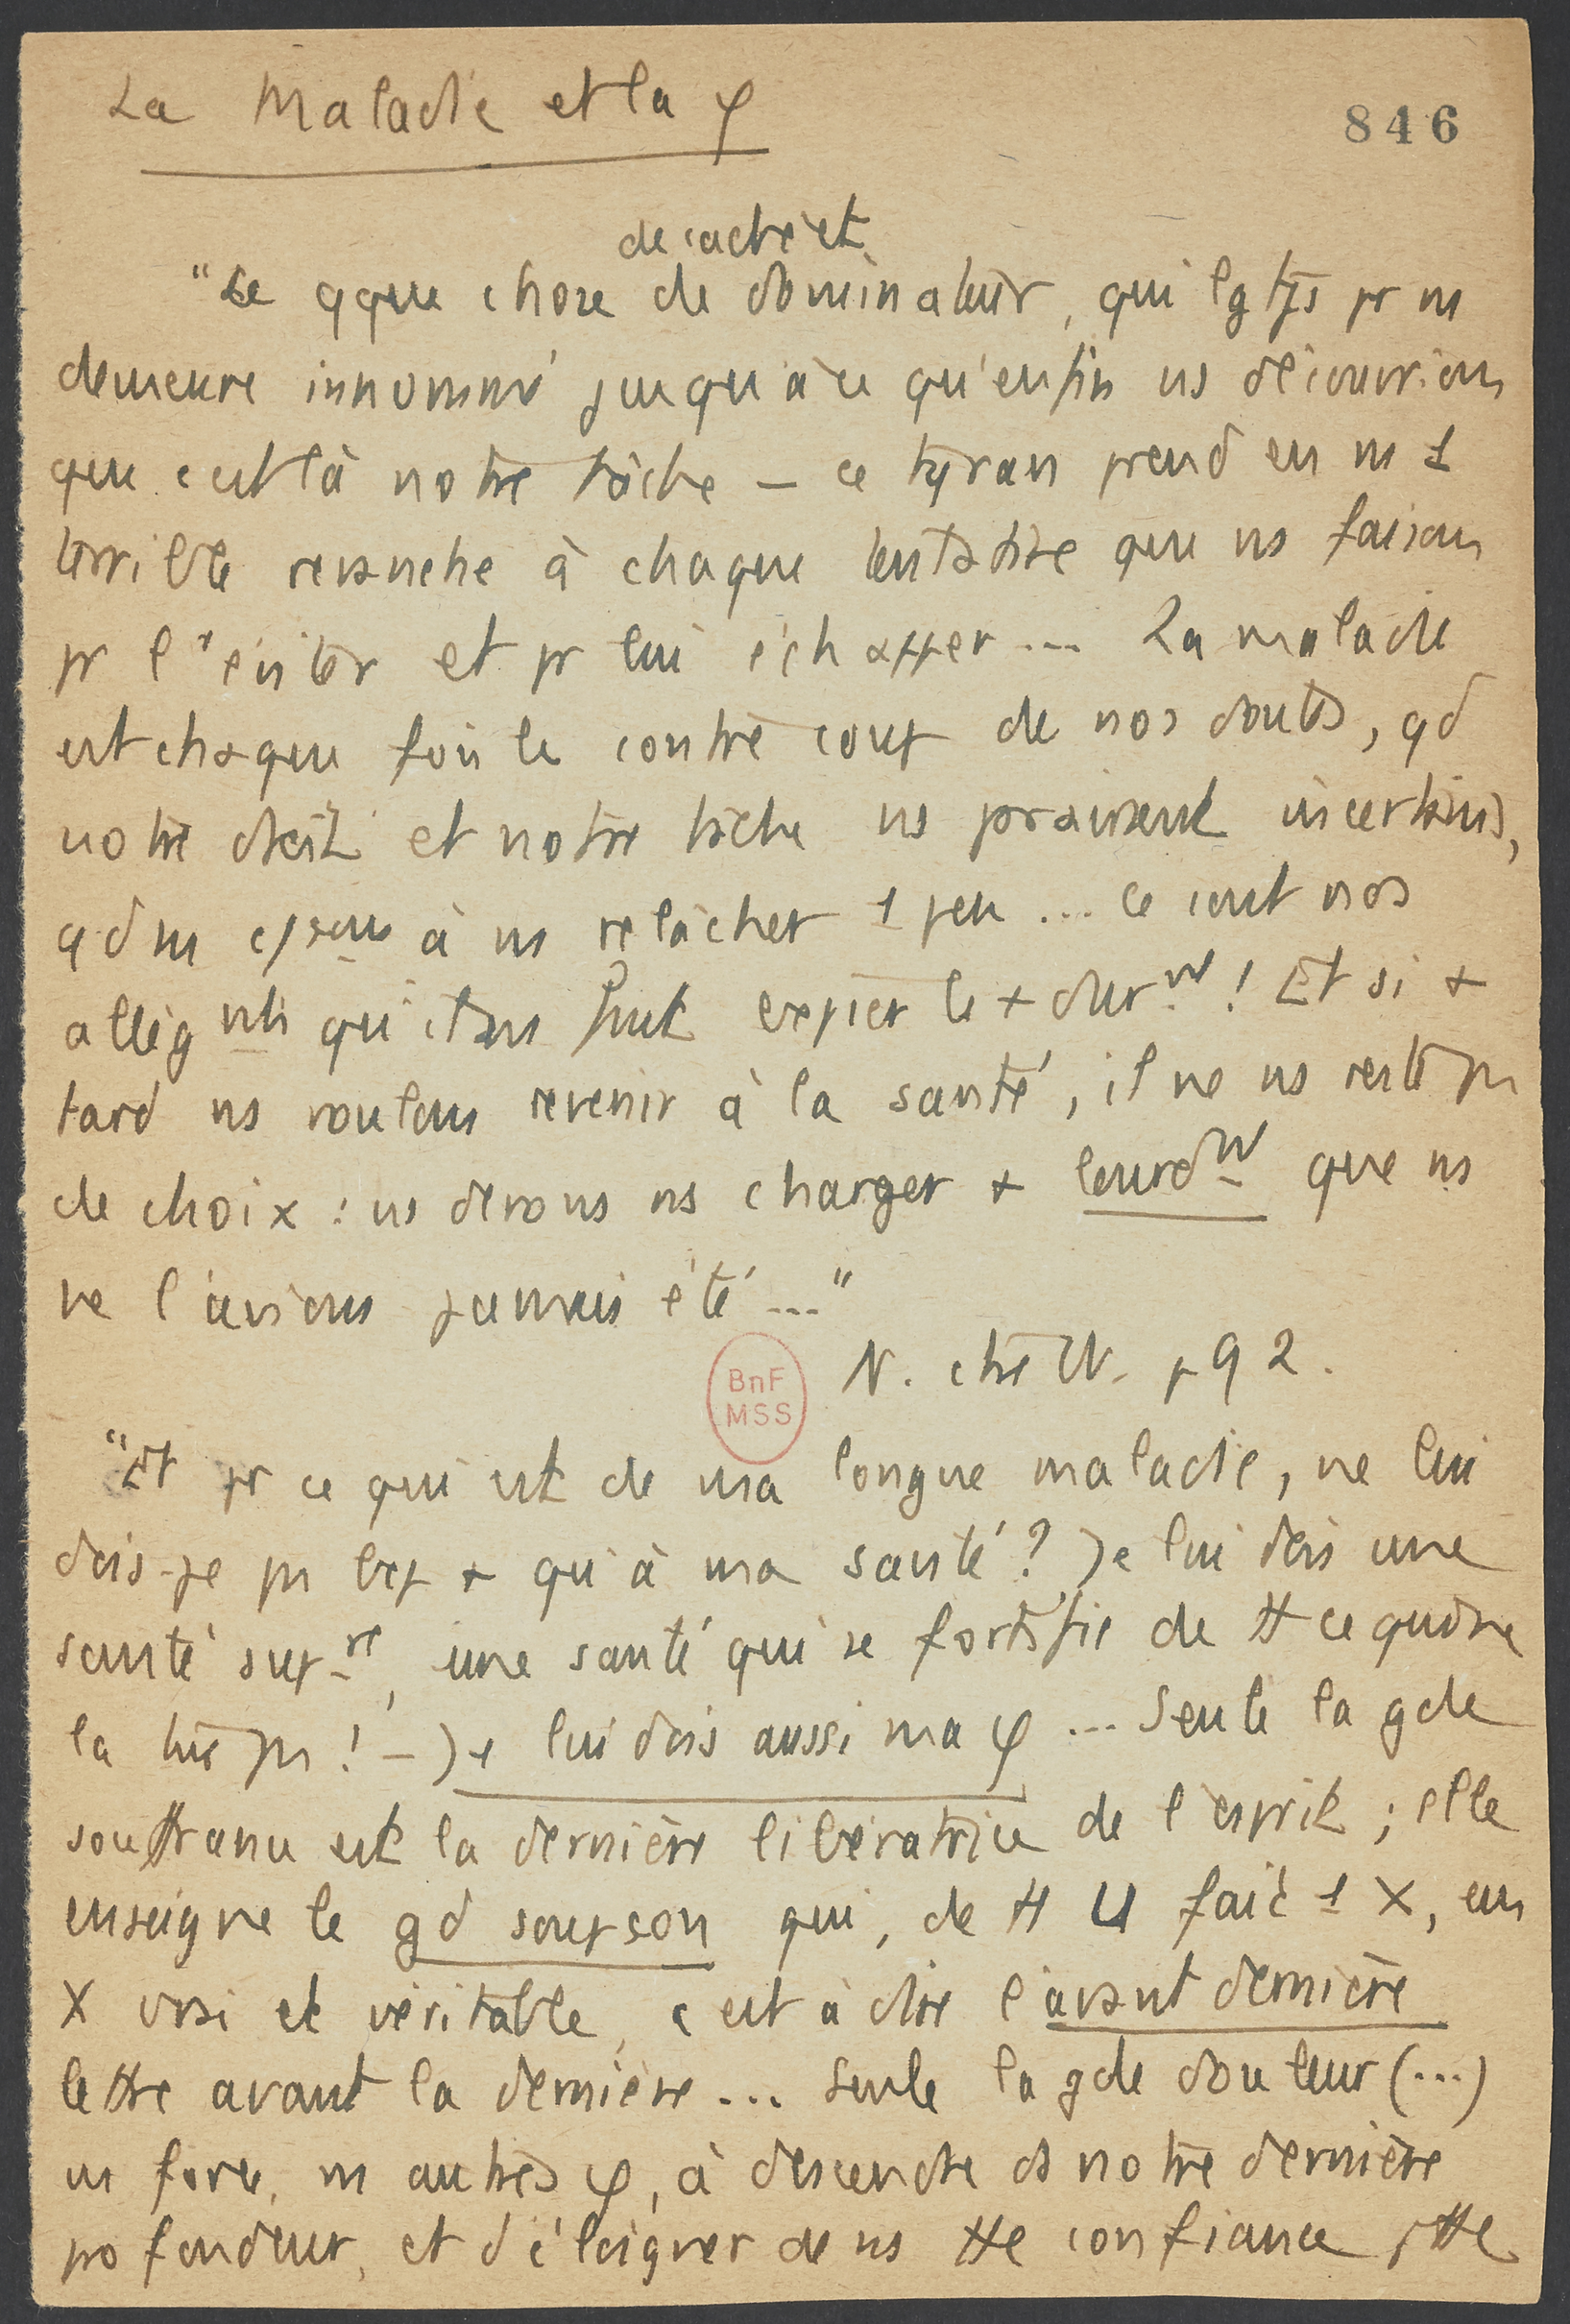 La Maladie et la φ
846
de caché et
"Ce qque chose de dominateur, qui lgtps pr ns
demeure innommé jusqu'à ce qu'enfin ns découvrions
que c'est là notre tâche – ce tyran prend en ns 1
terrible revanche à chaque tentative que ns faisons
pr l'éviter et pr lui échapper... La maladie
est chaque fois le contre coup de nos doutes, qd
notre droit et notre tâche ns praissent incertains,
qd ns à ns relâcher 1 peu... ce sont nos
allègnts qu'il ns faut expier le + durnt ! Et si +
tard ns voulons revenir à la santé, il ne ns reste ps
de choix : ns devons ns charger + lourdnt que ns
ne l'avions jamais été..."
N. ctre W. p 92.
BnF
MSS
"Et pr ce qui est de ma longue maladie, ne lui
dois-je ps bcp + qu'à ma santé ? Je lui dois une
santé supre, une santé qui se fortifie de tt ce qui ne
la tue ps ! – Je lui dois aussi ma φ... Seule la gde
souffrance est la dernière libératrice de l'esprit ; elle
enseigne le gd soupçon qui, de tt U fait 1 X, un
X vrai et véritable, c'est à dire l'avant dernière
lettre avant la dernière... Seule la gde douleur (...)
ns force, ns autres φ, à descendre ds notre dernière
profondeur, et d'éloigner de ns tte confiance, tte